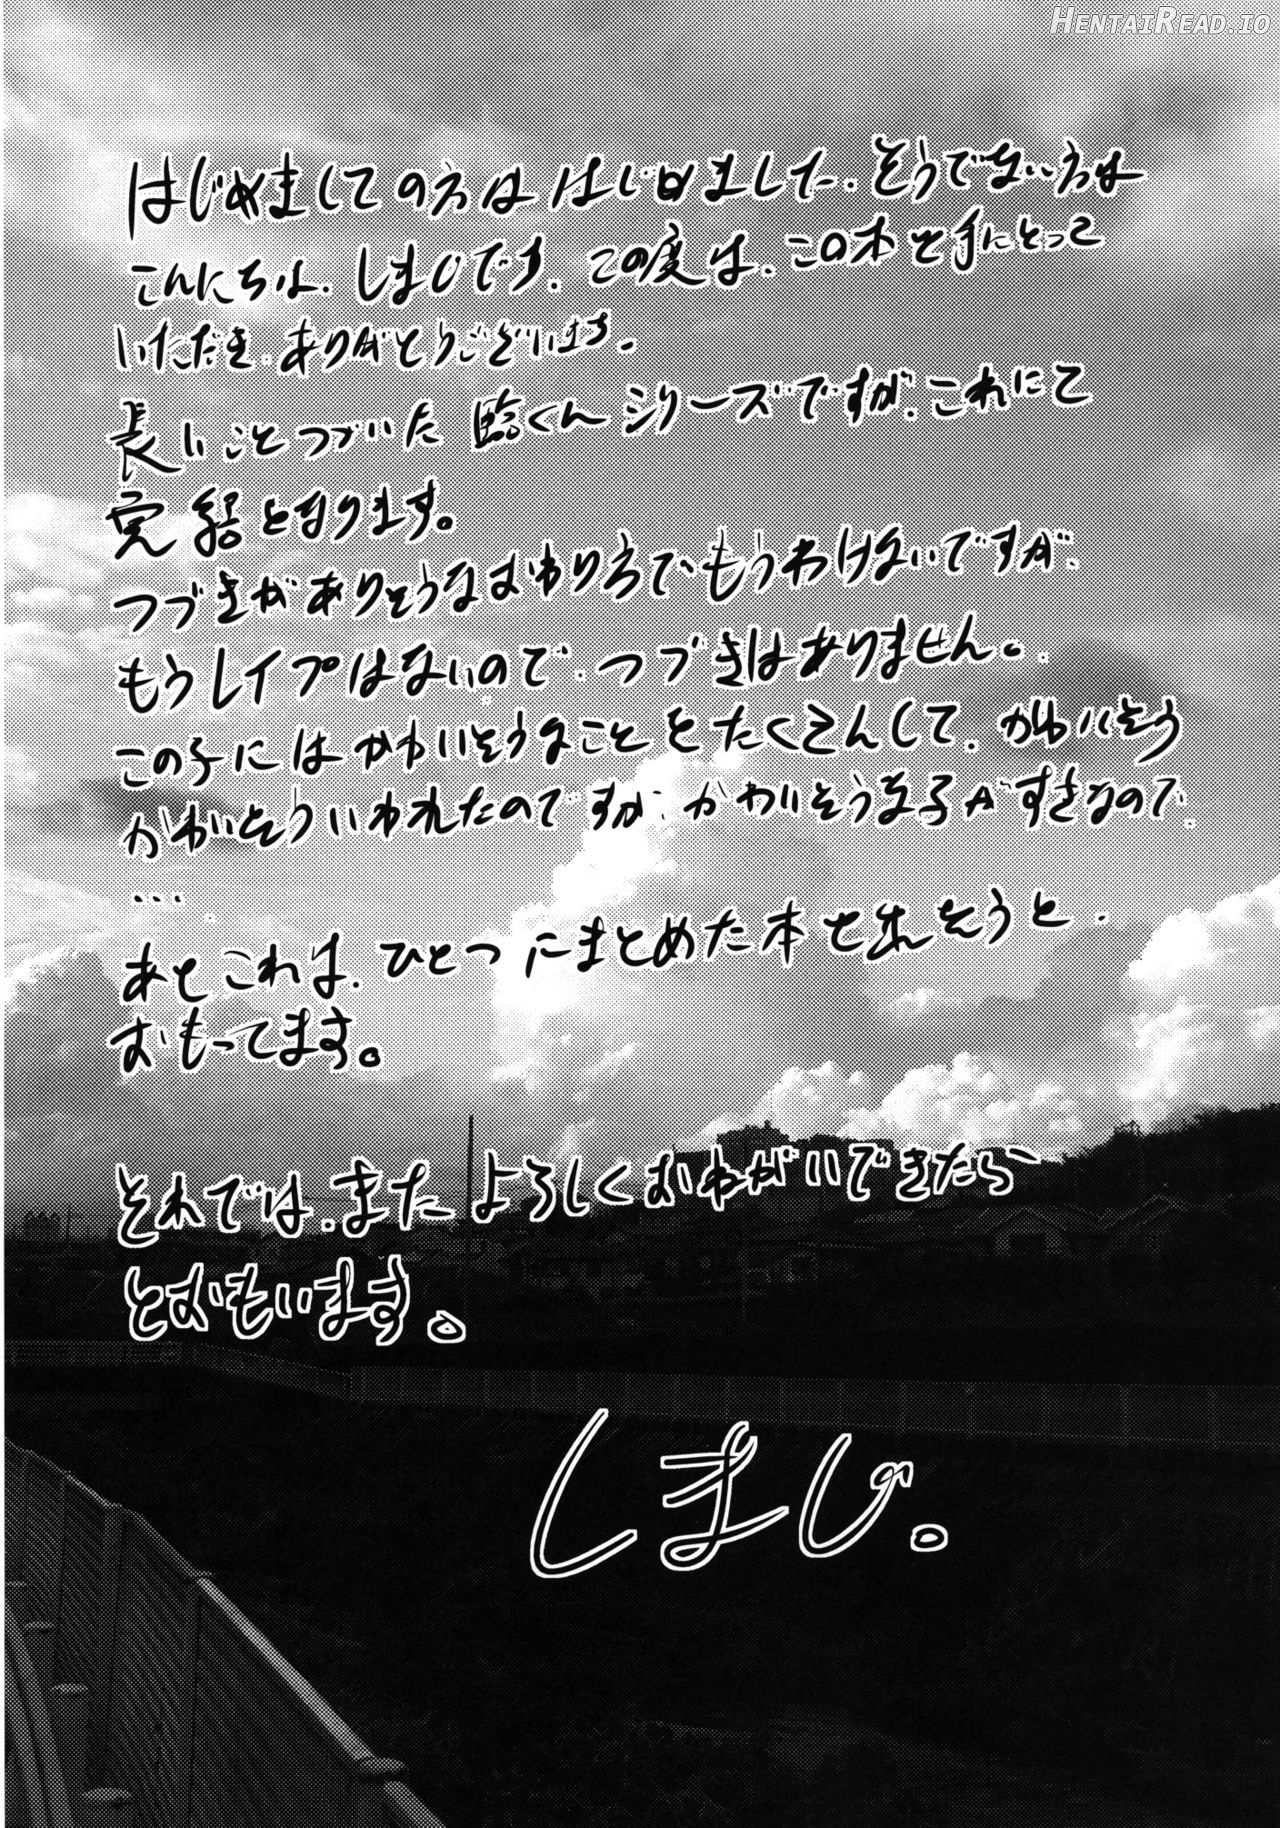 HentaiRead.io
はじめましての方は はじめました. そうでない方は
こんにちは. しまじです. この度は. この本を手にとって
いただき. ありがとうございます.
長いことつづいた くんシリーズですが. これにて
完結となります。
つづきがありそうなおわり方でもうわけないですが.
もうレイプはないので. つづきはありません。
この子にはかわいそうなことをたくさんして. かわいそう
かわいそういわれたのですが. かわいそうな子がすきなので.
...
あとこれは. ひとつにまとめた本を出そうと.
おもってます。
それでは. また よろしくおねがいできたら
とおもいます。
しまじ。